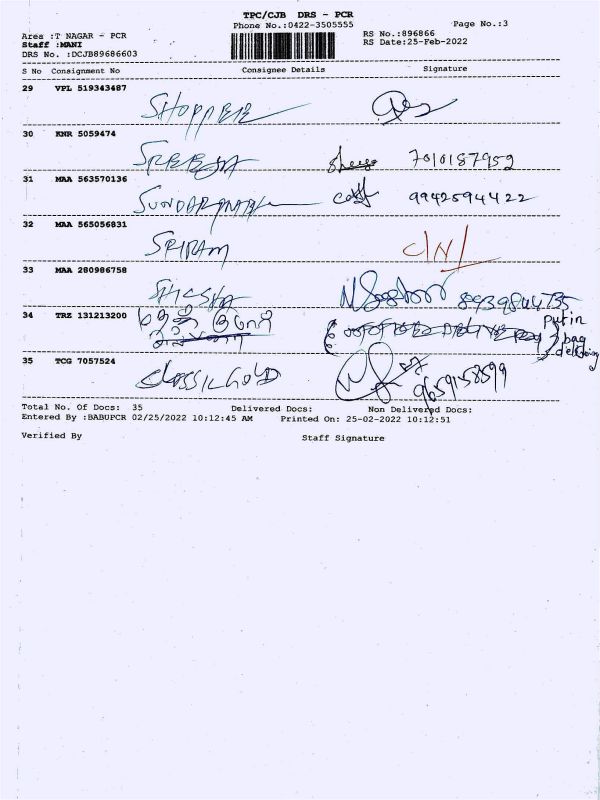 TPC/CJB DRS - PCR
Phone No.:0422-3505555 Page No.:3
Area :T NAGAR - PCR RS No.:896866
Staff :MANI RS Date:25-Feb-2022
DRS No. :DCJB89686603
S No Consignment No Consignee Details Signature
29 VPL 519343487
SHOPPEE
30 KNR 5059474
SREEJA 7010187952
31 MAA 563570136
9942594422
32 MAA 565056831
SRIRAM C/N/
33 MAA 280986758
8939844735
34 TRZ 131213200
put in
bag
35 TCG 7057524
CLASSIC GOLD 9659158599
Total No. Of Docs: 35 Delivered Docs: Non Delivered Docs:
Entered By :BABUPCR 02/25/2022 10:12:45 AM Printed On: 25-02-2022 10:12:51
Verified By Staff Signature